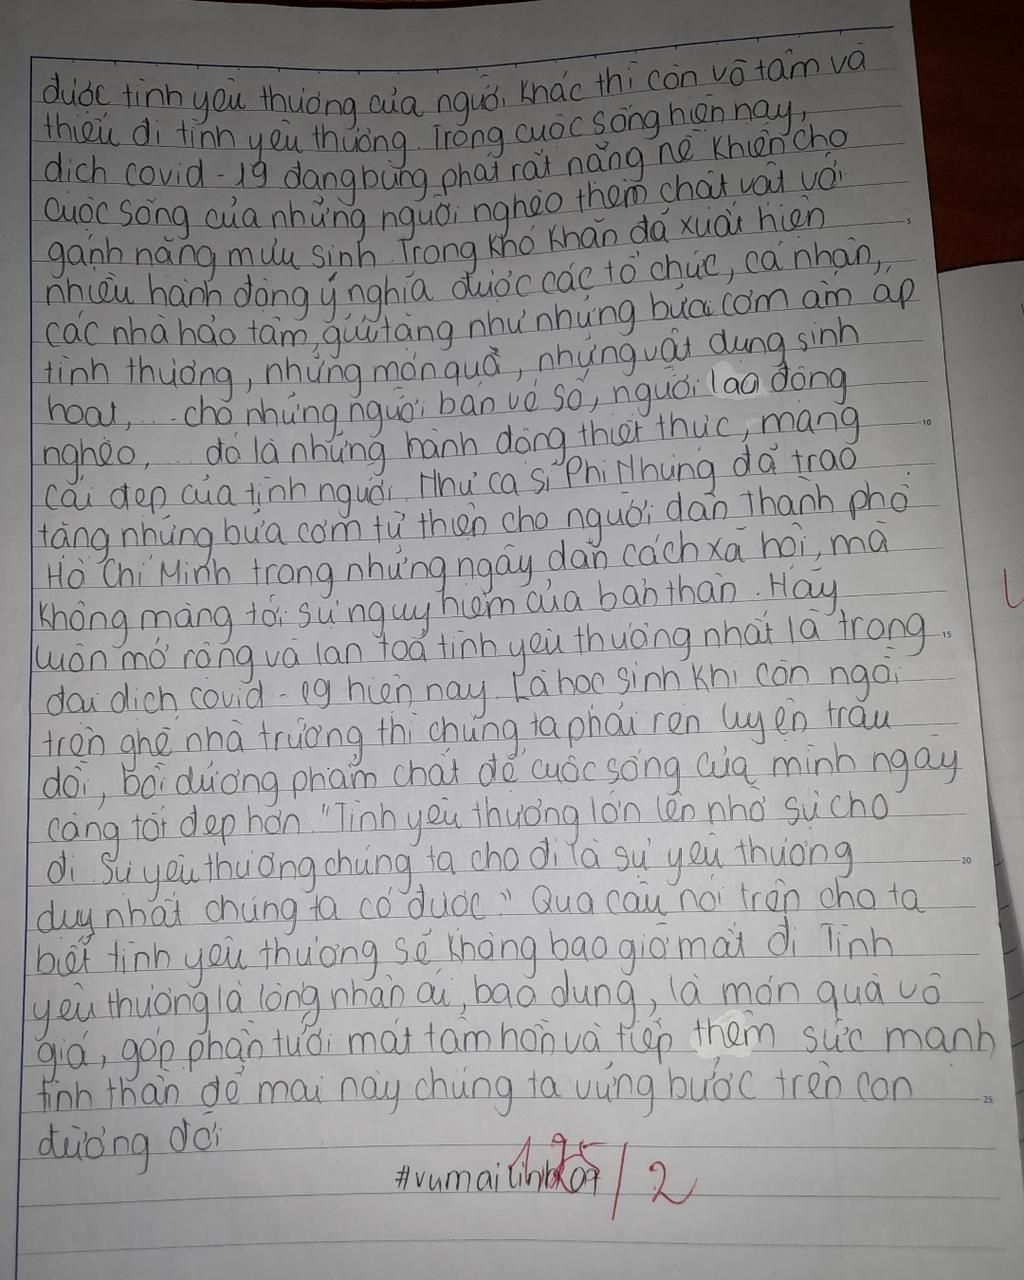 được tình yêu thương của người khác thì còn vô tâm và
thiếu đi tình yêu thương. Trong cuộc sống hiện nay,
dịch covid - 19 đang bùng phát rất nặng nề khiến cho
cuộc sống của những người nghèo thêm chật vật với
gánh nặng mưu sinh. Trong khó khăn đã xuất hiện
nhiều hành động ý nghĩa được các tổ chức, cá nhân,
các nhà hảo tâm, gửi tặng như những bữa cơm ấm áp
tình thương, những món quà, những vật dụng sinh
hoạt, ... cho những người bán vé số, người lao động
nghèo, ... đó là những hành động thiết thực, mang
cái đẹp của tình người. Như ca sĩ Phi Nhung đã trao
tặng những bữa cơm từ thiện cho người dân Thành phố
Hồ Chí Minh trong những ngày dãn cách xã hội, mà
không màng tới sự nguy hiểm của bản thân. Hãy
luôn mở rộng và lan toả tình yêu thương nhất là trong
đại dịch covid - 19 hiện nay. Là học sinh khi còn ngồi
trên ghế nhà trường thì chúng ta phải rèn luyện trau
dồi, bồi dưỡng phẩm chất để cuộc sống của mình ngày
càng tốt đẹp hơn. "Tình yêu thương lớn lên nhờ sự cho
đi. Sự yêu thương chúng ta cho đi là sự yêu thương
duy nhất chúng ta có được". Qua câu nói trên cho ta
biết tình yêu thương sẽ không bao giờ mất đi. Tình
yêu thương là lòng nhân ái, bao dung, là món quà vô
giá, góp phần tưới mát tâm hồn và tiếp thêm sức mạnh
tinh thần để mai này chúng ta vững bước trên con
đường đời
5
10
15
20
25
#vumailinhk09
1,95 / 2